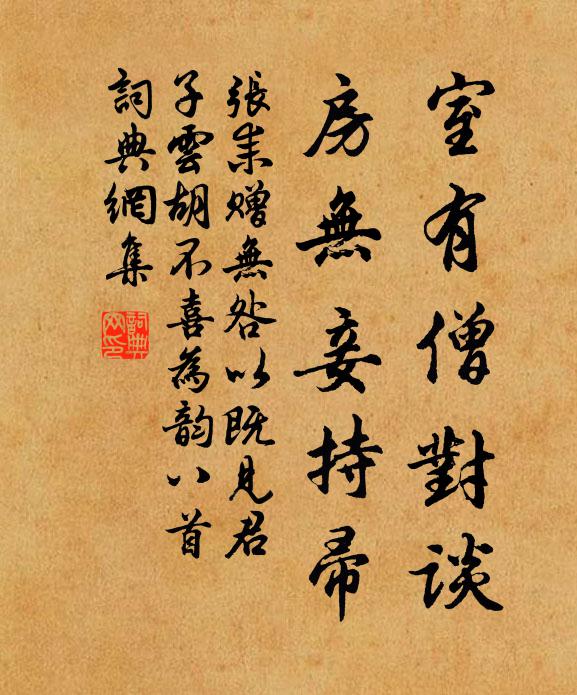 室有僧對談
房無妾持帚
張耒贈無咎以既見君
子雲胡不喜為韵八首
詞典網集
詞典網印